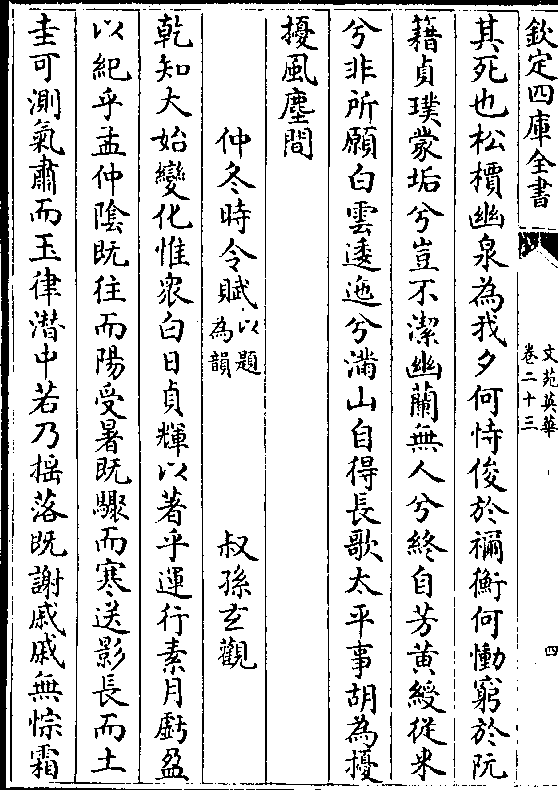 欽定四庫全書
文苑英華
卷二十三
四
其死也松檟幽泉為我夕何恃俊於禰衡何慟窮於阮
籍貞璞蒙垢兮豈不潔幽蘭無人兮終自芳黃綬從來
兮非所願白雲逶迤兮滿山自得長歌太平事胡為擾
擾風塵間
仲冬時令賦以題為韻 叔孫玄觀
乾知大始變化惟衆白日貞輝以著乎運行素月虧盈
以紀乎孟仲陰既往而陽受暑既驟而寒送影長而土
圭可測氣肅而玉律潛中若乃搖落既謝戚戚無悰霜